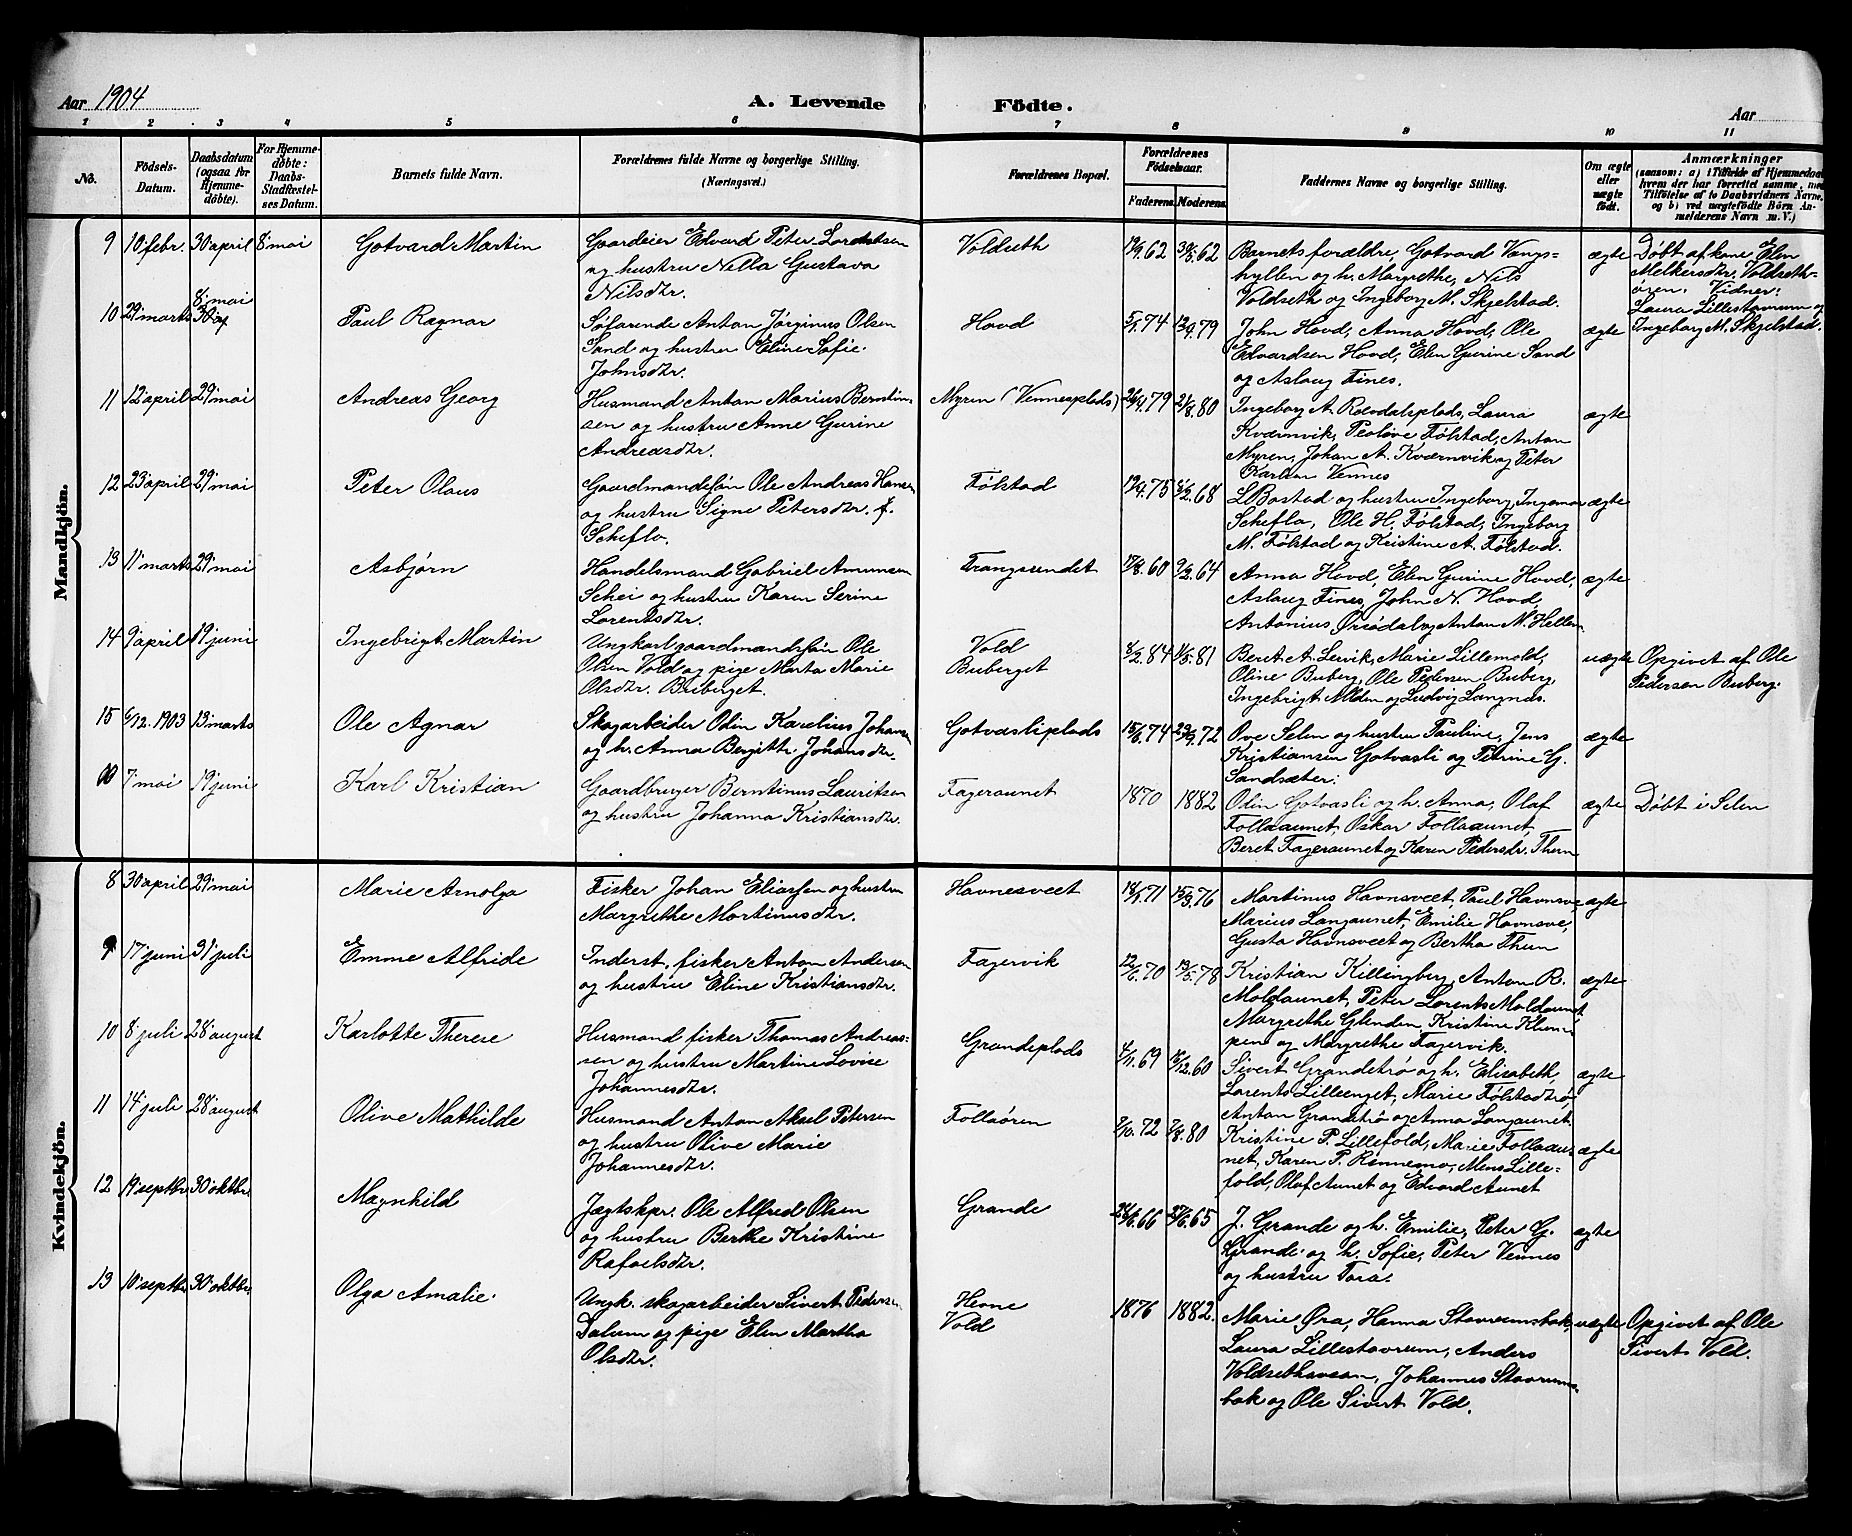 Aar 1904
A. Levende Födte.
Aar
1 2 3 4 5 6 7 8 9 10 11
No.
Födsels-Datum.
Daabsdatum (ogsaa for Hjemmedöbte).
For Hjemmedöbte: Daabs-Stadfæstelses Datum.
Barnets fulde Navn.
Forældrenes fulde Navne og borgerlige Stilling. (Næringsvei.)
Forældrenes Bopæl.
Forældrenes Födselsaar.
Faderens. Moderens.
Faddernes Navne og borgerlige Stilling.
Om ægte eller uægte födt.
Anmærkninger
(saasom: a) i Tilfælde af Hjemmedaab
hvem der har forrettet samme, med
Tilföielse af to Daabsvidners Navne,
og b) ved uægtefödte Börn An-
melderens Navn m. V.)
Mandkjön.
9 10 febr. 30 april 8 mai Gotvard Martin
Gaardeier Edvard Peter Lorentsen
og hustru Nilla Gustava
Nilsdtr.
Voldseth
Barnets forældre, Gotvard Vangs-
hyllen og h. Margrethe, Nils
Voldseth og Ingeborg M. Skjelstad.
ægte
Døbt af kone Elen
Melkersdtr. Voldseth-
øren. Vidner:
Laura Lillestavrum og
Ingeborg M. Skjelstad.
8 mai
10 29 marts Paul Ragnar
Søfarende Anton Jørginus Olsen
Sand og hustru Eline Sofie
Johnsdtr.
Hovd
5/1.74
John Hovd, Anna Hovd, Ole
Edvardsen Hovd, Elen Gurine Sand
og Aslaug Fines.
ægte
11 12 april 29 mai Andreas Georg
Husmand Anton Marius Berntin-
sen og hustru Anne Gurine
Andreasdtr.
Myren (Vennesplads)
Ingeborg A. Rævdalsplads, Laura
Kværnvik, Peolive Følstad, Anton
Myren, Johan A. Kværnvik og Peter
Karlsen Vennes
ægte
12 23 april 29 mai Peter Olaus
Gaardmandsføn Ole Andreas Hansen
og hustru Signe Petersdtr. f.
Scheflo.
Følstad
L Bostad og hustru Ingeborg, Ingeman
Scheflo, Ole H. Følstad, Ingeborg
M. Følstad og Kristine A. Følstad.
ægte
13 11 marts 29 mai Asbjørn
Handelsmand Gabriel Amunsen
Schei og hustru Karen Serine
Lorentsdtr.
Trangsundet
17/8.60 9/2.64
Anna Hovd, Elen Gurine Hovd,
Aslaug Fines, John N. Hovd,
Antonius Ørsødal og Anton M. Hellem
ægte
14 9 april 19 juni Ingebrigt Martin
Ungkarl gaardmandsføn Ole
Olsen Vold og pige Marta Marie
Olsdtr. Buberget.
Vold
Buberget
8/2.84
Beret A. Lervik, Marie Lillemold,
Oline Buberg, Ole Pedersen Buberg,
Ingebrigt Alden og Ludvig Langnes.
uægte
Opgivet af Ole
Pedersen Buberg.
15 6/12.1903 13 marts Ole Agnar
Skogarbeider Odin Karelius Johansen
og h. Anna Bergitte Johansdtr.
Gotvasliplads
15/6.74 29/9.72
Ove Selen og hustru Pauline, Jens
Kristiansen Gotvasli og Petrine G.
Sandsæter.
ægte
7 mai 19 juni Karl Kristian
Gaardbruger Berntinus Lauritsen
og hustru Johanna Kristiansdtr.
Fageraunet
1870 1882
Odin Gotvasli og h. Anna, Olaf
Follaaunet, Oskar Follaaunet,
Beret Fageraunet og Karen Pedersdtr. Thun
ægte
Døbt i Selen
Kvindekjön.
8 30 april 29 mai Marie Arnolga
Fisker Johan Eliassen og hustru
Margrethe Martinusdtr.
Havnesveet
18/1.71 15/3.76
Martinus Havnsveet, Paul Havnsve,
Marius Langaunet, Emilie Havnsve,
Gusta Havnsveet og Bertha Thun
ægte
9 17 juni 31 juli Emme Alfride
Inderst, fisker Anton Andersen
og hustru Eline Kristiansdtr.
Fagervik
12/6.70 19/5.78
Kristian Killingberg, Anton R.
Moldaunet, Peter Lorents Moldaunet
Margrethe Glenden, Kristine Klum-
pen og Margrethe Fagervik.
ægte
10 8 juli 28 august Karlotte Therese
Husmand fisker Thomas Andreas-
sen og hustru Martine Lovise
Johannesdtr.
Grandeplads
4/11.69
Sivert Grandetrø og h. Elisabeth
Lorents Lilleenget, Marie Følstadtrø,
Anton Grandetrø og Anna Langaunet.
ægte
11 14 juli 28 august Olive Mathilde
Husmand Anton Aksel Petersen
og hustru Olive Marie
Johannesdtr.
Follaøren
2/10.72 7/8.80
Kristine P. Lillefold, Marie Follaau-
net, Karen P. Rønnemo, Mens Lille-
fold, Olaf Aunet og Edvard Aunet
ægte
12 19 septbr. 30 oktbr. Magnhild
Jægtskpr. Ole Alfred Olsen
og hustru Berke Kristine
Rafaelsdtr.
Grande
28/6.66 27/6.65
J. Grande og h. Emilie, Peter G.
Grande og h. Sofie, Peter Vennes
og hustru Tora.
ægte
13 10 septbr. 30 oktbr. Olga Amalie.
Ungk. skogarbeider Sivert Pedersen
Dalum og pige Elen Martha
Olsdtr.
Hevne
Vold
1876 1882.
Marie Øra, Hanna Stavrumsbak,
Laura Lillestavrum, Anders
Voldsethavsan, Johannes Stavrums-
bak og Ole Sivert Vold.
uægte
Opgivet af Ole
Sivert Vold.